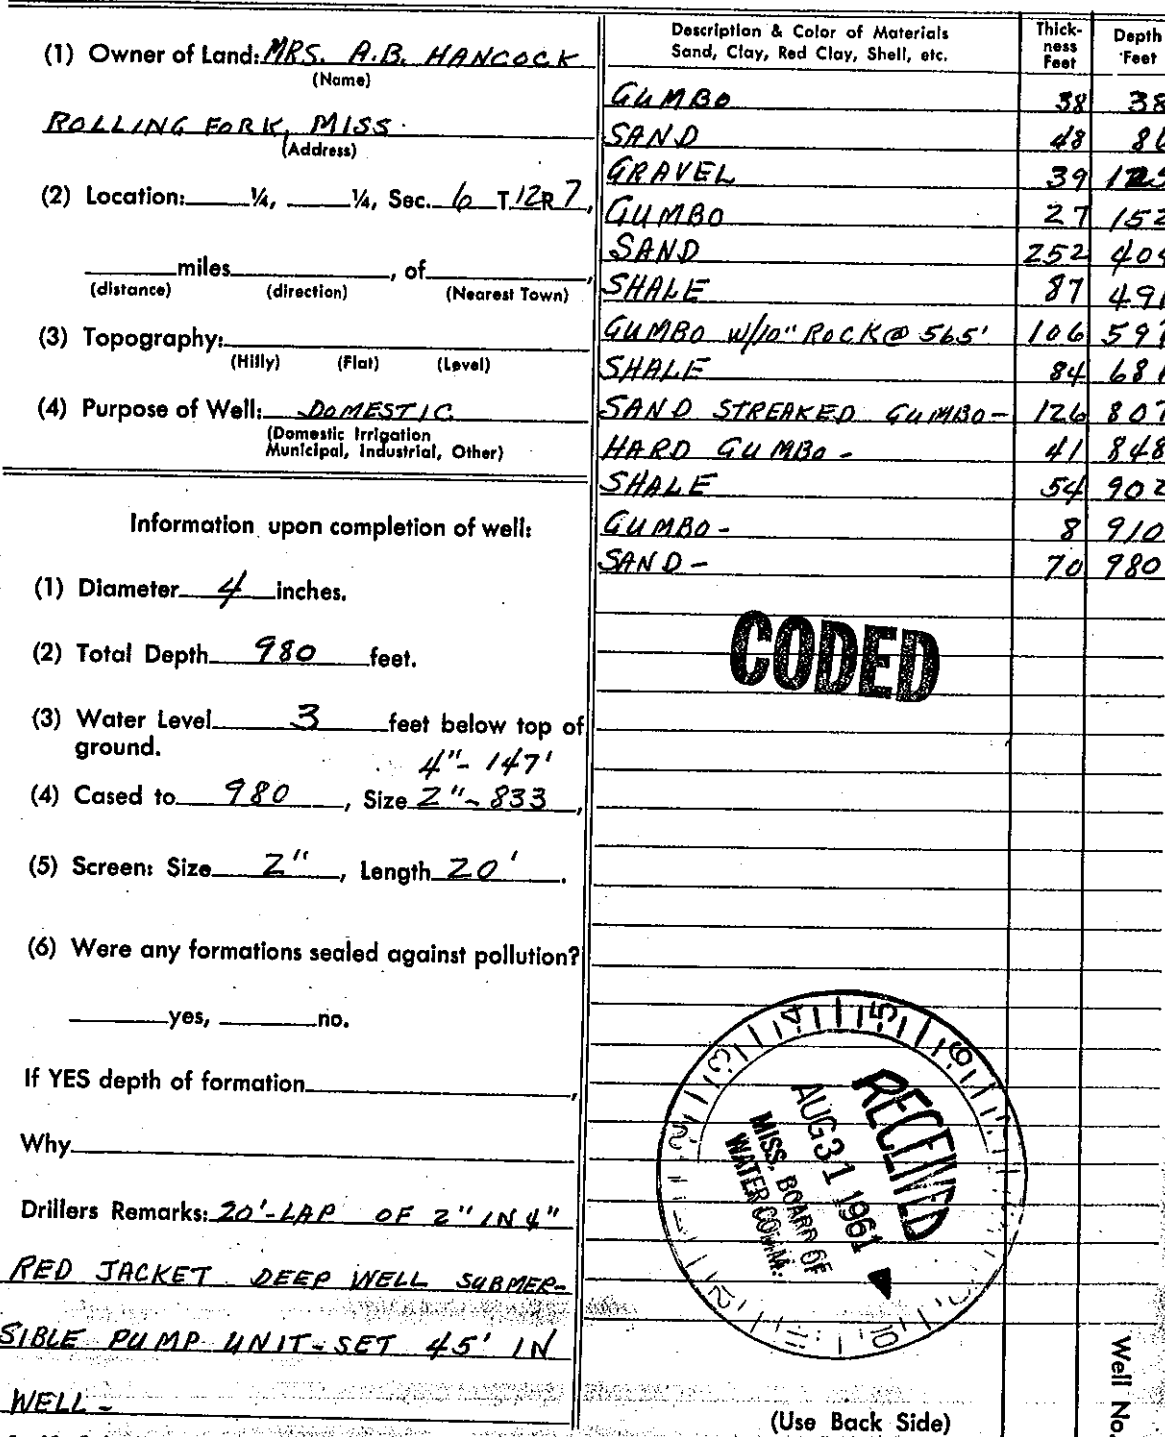 (1) Owner of Land: MRS. A.B. HANCOCK
(Name)
ROLLING FORK, MISS.
(Address)
(2) Location: ¼, ¼, Sec. 6 T 12 R 7,
miles , of ,
(distance) (direction) (Nearest Town)
(3) Topography:
(Hilly) (Flat) (Level)
(4) Purpose of Well: DOMESTIC
(Domestic Irrigation
Municipal, Industrial, Other)
Information upon completion of well:
(1) Diameter 4 inches.
(2) Total Depth 980 feet.
(3) Water Level 3 feet below top of
ground.
4"- 147'
(4) Cased to 980, Size 2"- 833,
(5) Screen: Size 2", Length 20'.
(6) Were any formations sealed against pollution?
yes, no.
If YES depth of formation ,
Why
Drillers Remarks: 20'-LAP OF 2" IN 4"
RED JACKET DEEP WELL SUBMER-
SIBLE PUMP UNIT-SET 45' IN
WELL-
Description & Color of Materials
Sand, Clay, Red Clay, Shell, etc.
Thick-
ness
Feet
Depth
Feet
GUMBO 38 38
SAND 48 86
GRAVEL 39 125
GUMBO 27 152
SAND 252 404
SHALE 87 491
GUMBO W/10" ROCK @ 565' 106 597
SHALE 84 681
SAND STREAKED GUMBO- 126 807
HARD GUMBO- 41 848
SHALE 54 902
GUMBO- 8 910
SAND- 70 980
CODED
RECEIVED
AUG 31 1961
MISS. BOARD OF
WATER COMM.
(Use Back Side)
Well No.